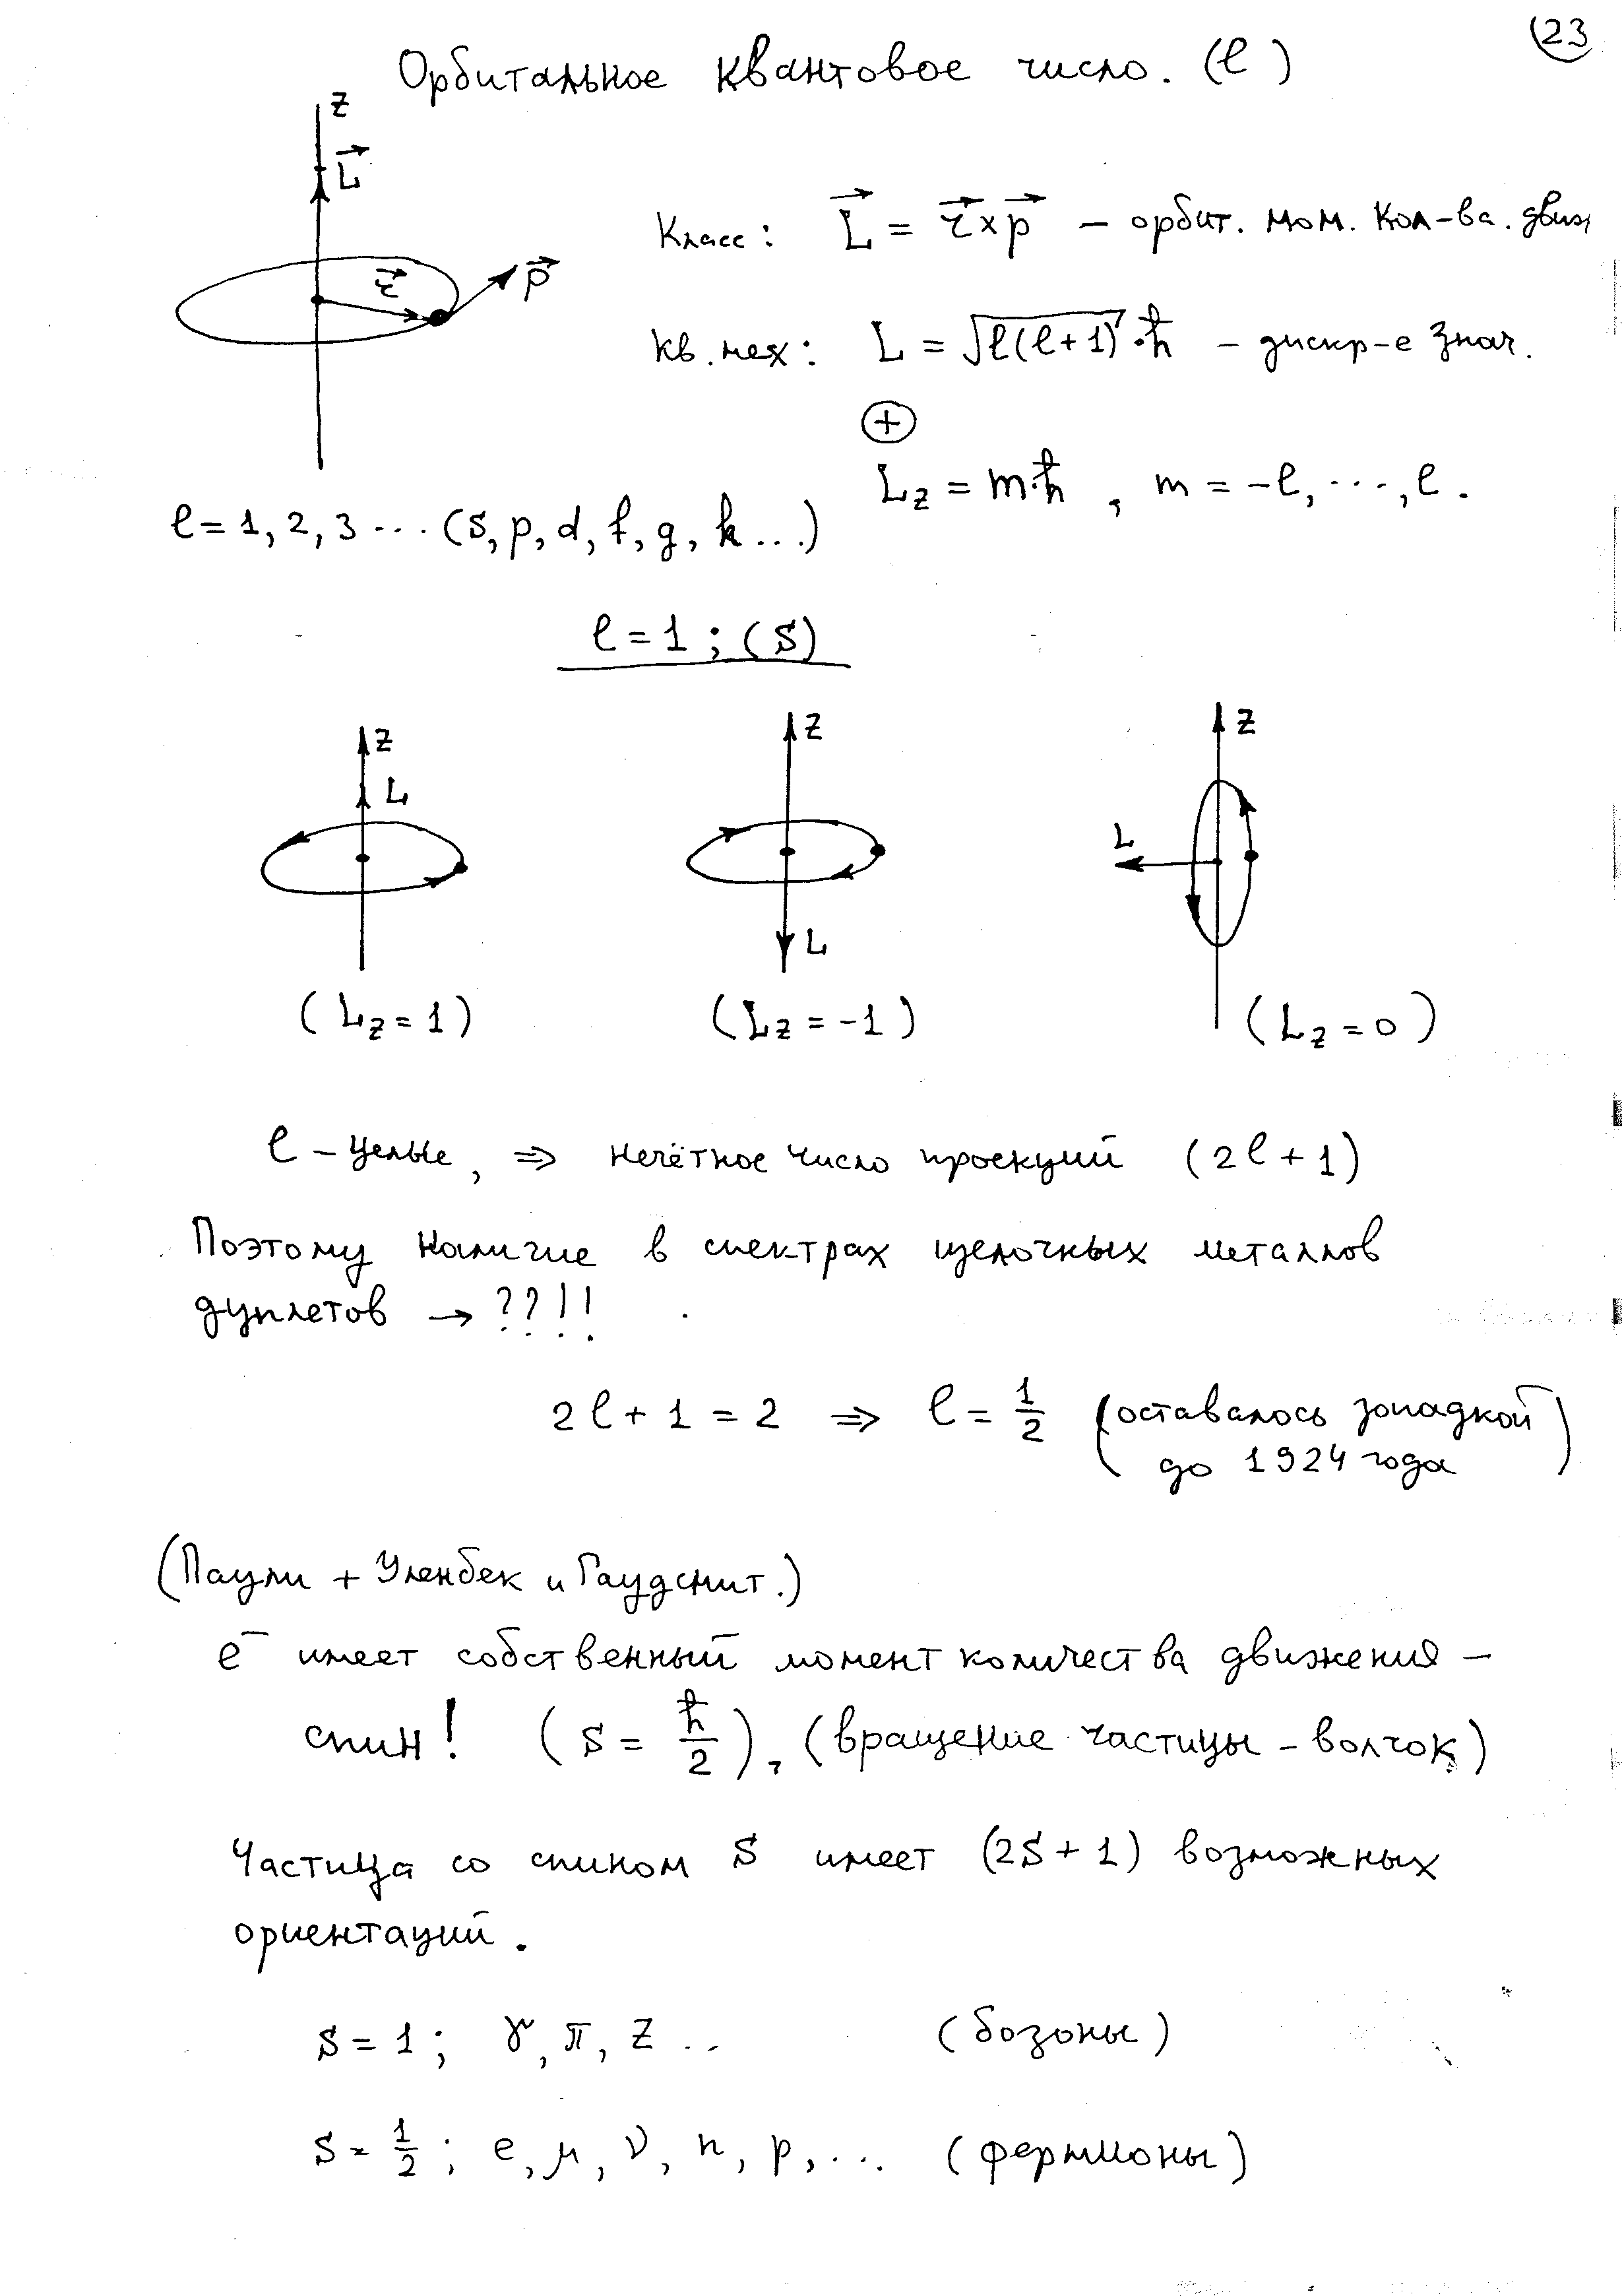 23
Орбитальное квантовое число. (ℓ)
z
L⃗
r⃗
p⃗
Класс: L⃗ = r⃗ × p⃗ – орбит. мом. кол-ва. движ
кв. мех: L = √ℓ(ℓ+1) · ħ – дискр-е знач.
⊕
L_z = m·ħ , m = -ℓ, ..., ℓ.
ℓ = 1, 2, 3 ... (s, p, d, f, g, k ...)
ℓ = 1 ; (S)
z z z
L L L
(L_z = 1) (L_z = -1) (L_z = 0)
ℓ – целые, ⇒ нечётное число проекций (2ℓ + 1)
Поэтому наличие в спектрах щелочных металлов
дуплетов → ??!!
2ℓ + 1 = 2 ⇒ ℓ = 1/2 (оставалось загадкой
до 1924 года)
(Паули + Уленбек и Гаудсмит.)
e⁻ имеет собственный момент количества движения –
спин! (s = ħ/2), (вращение частицы – волчок)
Частица со спином S имеет (2S + 1) возможных
ориентаций.
S = 1 ; γ, π, Z .. (бозоны)
S = 1/2 ; e, μ, ν, n, p, ... (фермионы)